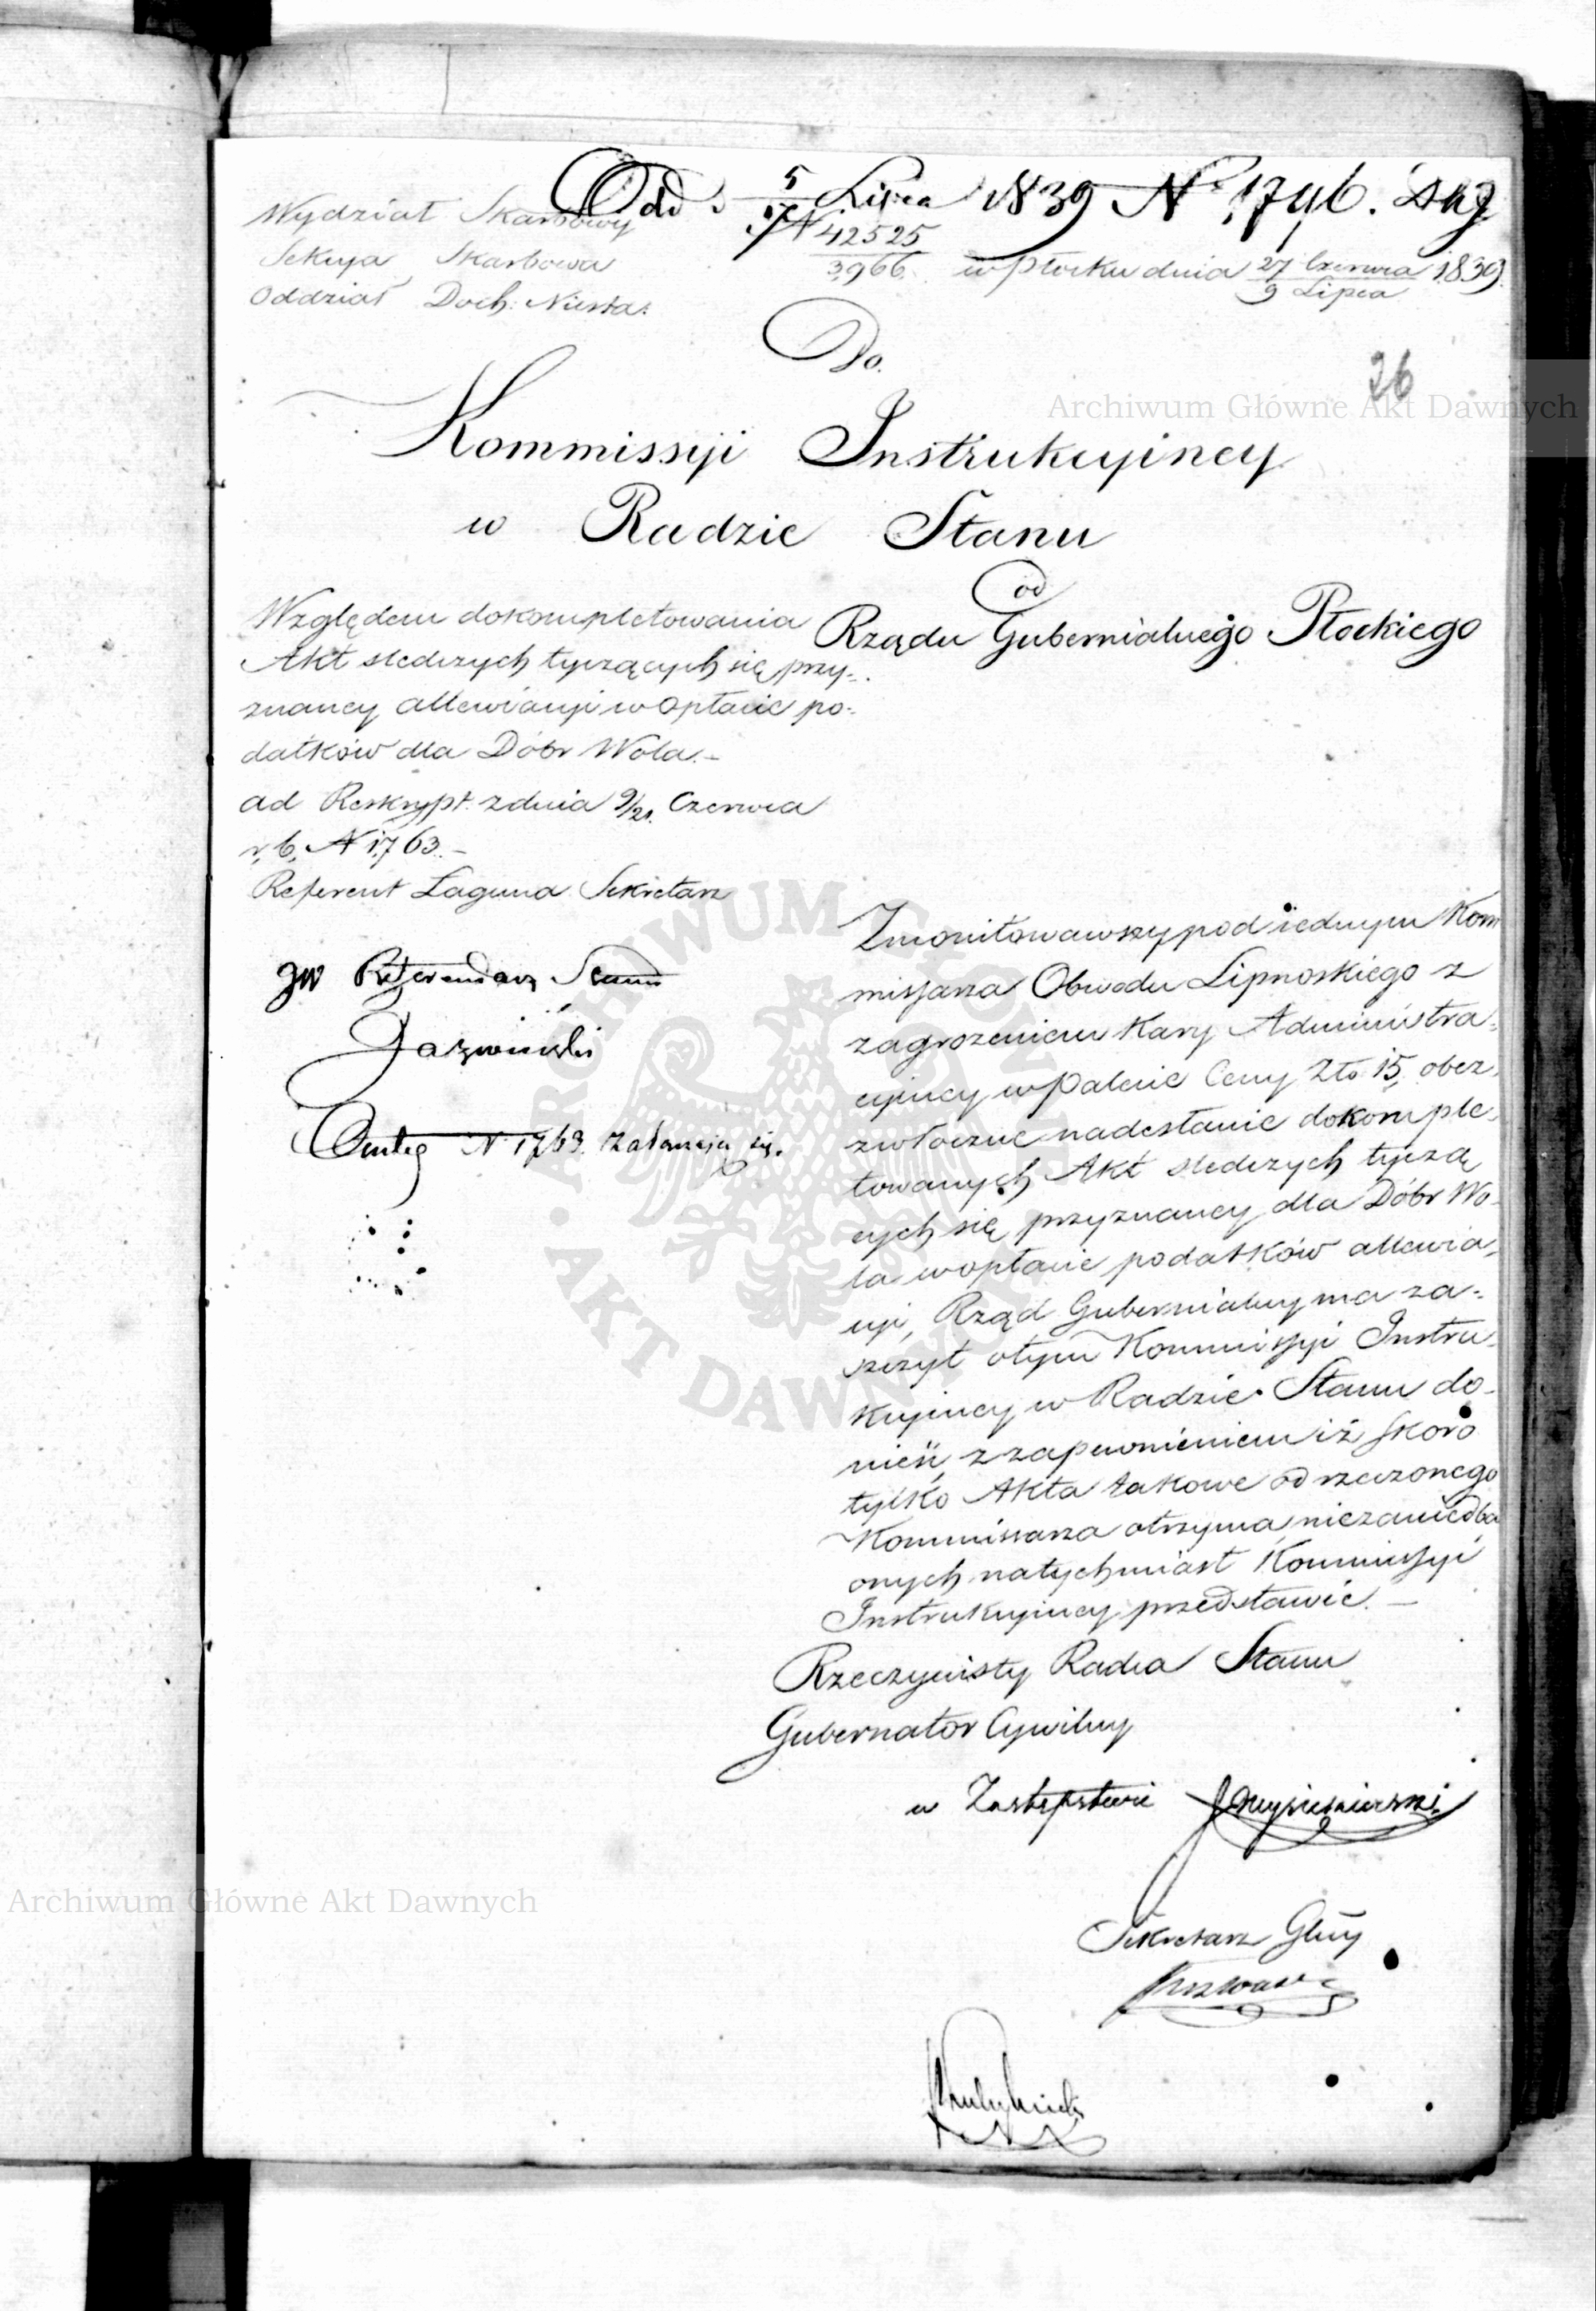 Odd. d. 5/17 Lipca 1839 N° 1746.
Wydział Skarbowy
Sekcya Skarbowa
Oddział Doch: Niesta:
N 42525/3966. w Płocku dnia 27 Czerwca/9 Lipca 1839.
Do.
26
Archiwum Główne Akt Dawnych
Kommissyi Instrukcyiney
w Radzie Stanu
od
Rządu Gubernialnego Płockiego
Względem dokompletowania
Akt sledczych tyczących się przy-
znaney allewiacyi w opłacie po-
datków dla Dóbr Wola.-
ad Reskrypt z dnia 9/21. Czerwca
r, b, N 1763.-
Referent Laguna Sekretarz
JW Referendarz Stanu
N 1763. załamuja się.
Zmonitowawszy pod iednym Kom
missarza Obwodu Lipnoskiego z
zagrożeniem Kary Administra-
cyiney w Palecie Ceny Zło 15, obez-
zwłoczne nadesłanie dokomple-
towanych Akt sledczych tyczą
cych się przyznaney dla Dóbr Wo-
la w opłacie podatków allewia-
cyi, Rząd Gubernialny ma za-
szczyt o tym Kommissyi Instru-
kcyiney w Radzie Stanu do-
nieść, z zapewnieniem iż skoro
tylko Akta takowe od rzeczonego
Kommissarza otrzyma, niezaniedba
onych natychmiast Kommissyi
Instrukcyiney przedstawić. -
Rzeczywisty Radca Stanu
Gubernator Cywilny
w Zastępstwie
Sekretarz Głny
Archiwum Główne Akt Dawnych
ARCHIWUM GŁÓWNE • AKT DAWNYCH •